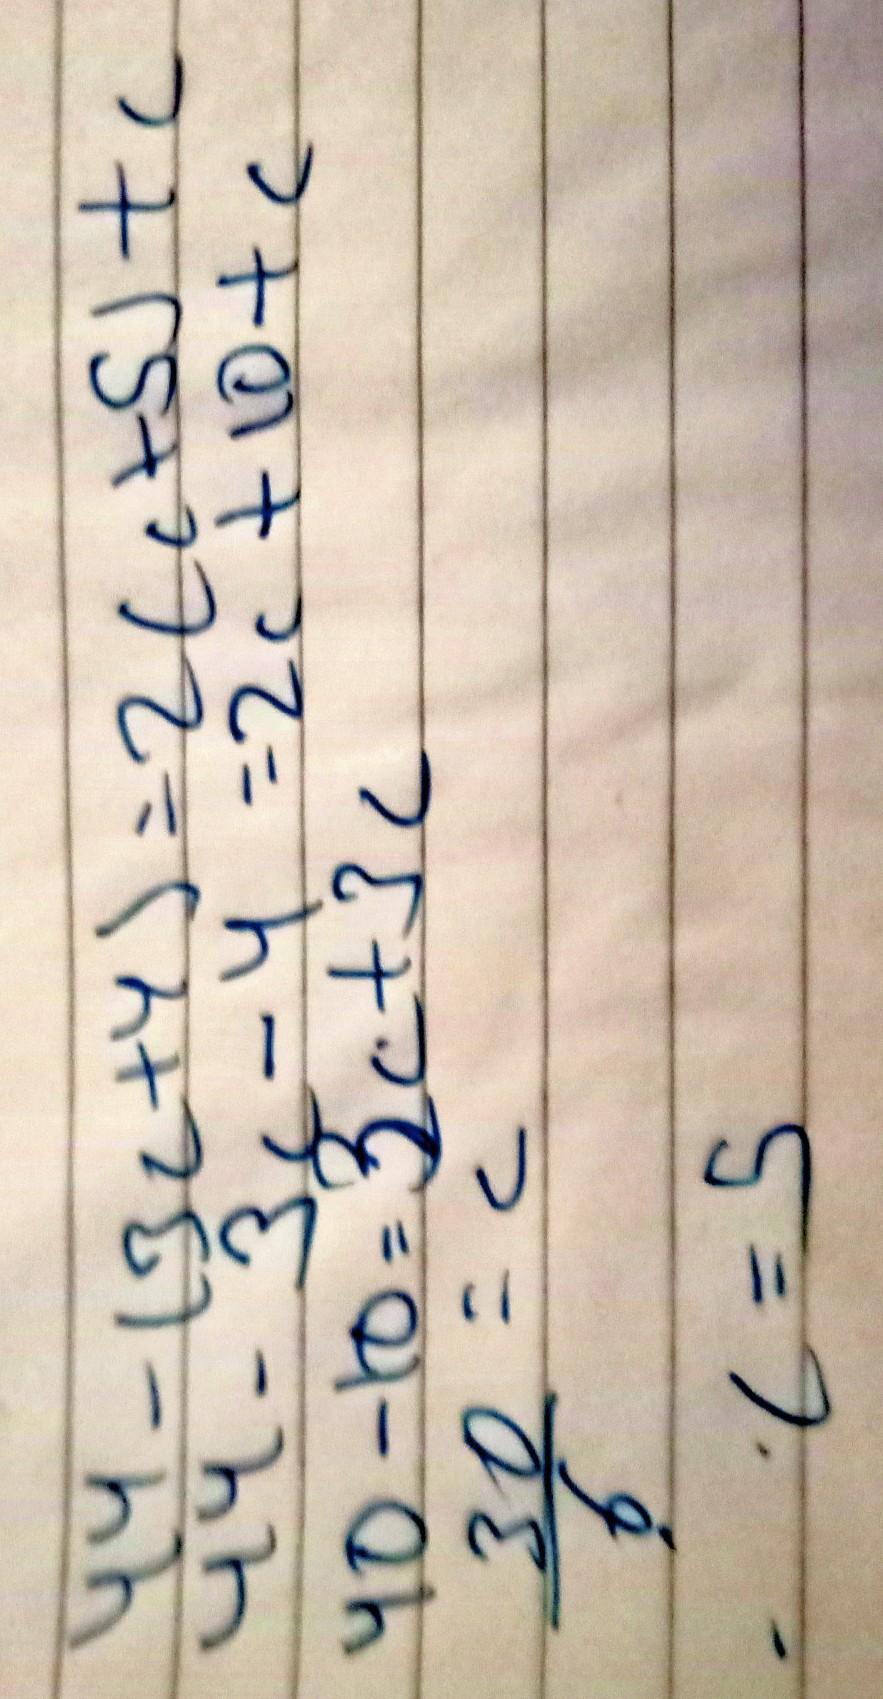 44 - (3c + 4) = 2(c + 5) + c
44 - 3c - 4 = 2c + 10 + c
40 - 10 = 3c + 3c
30/6 = c
c = 5